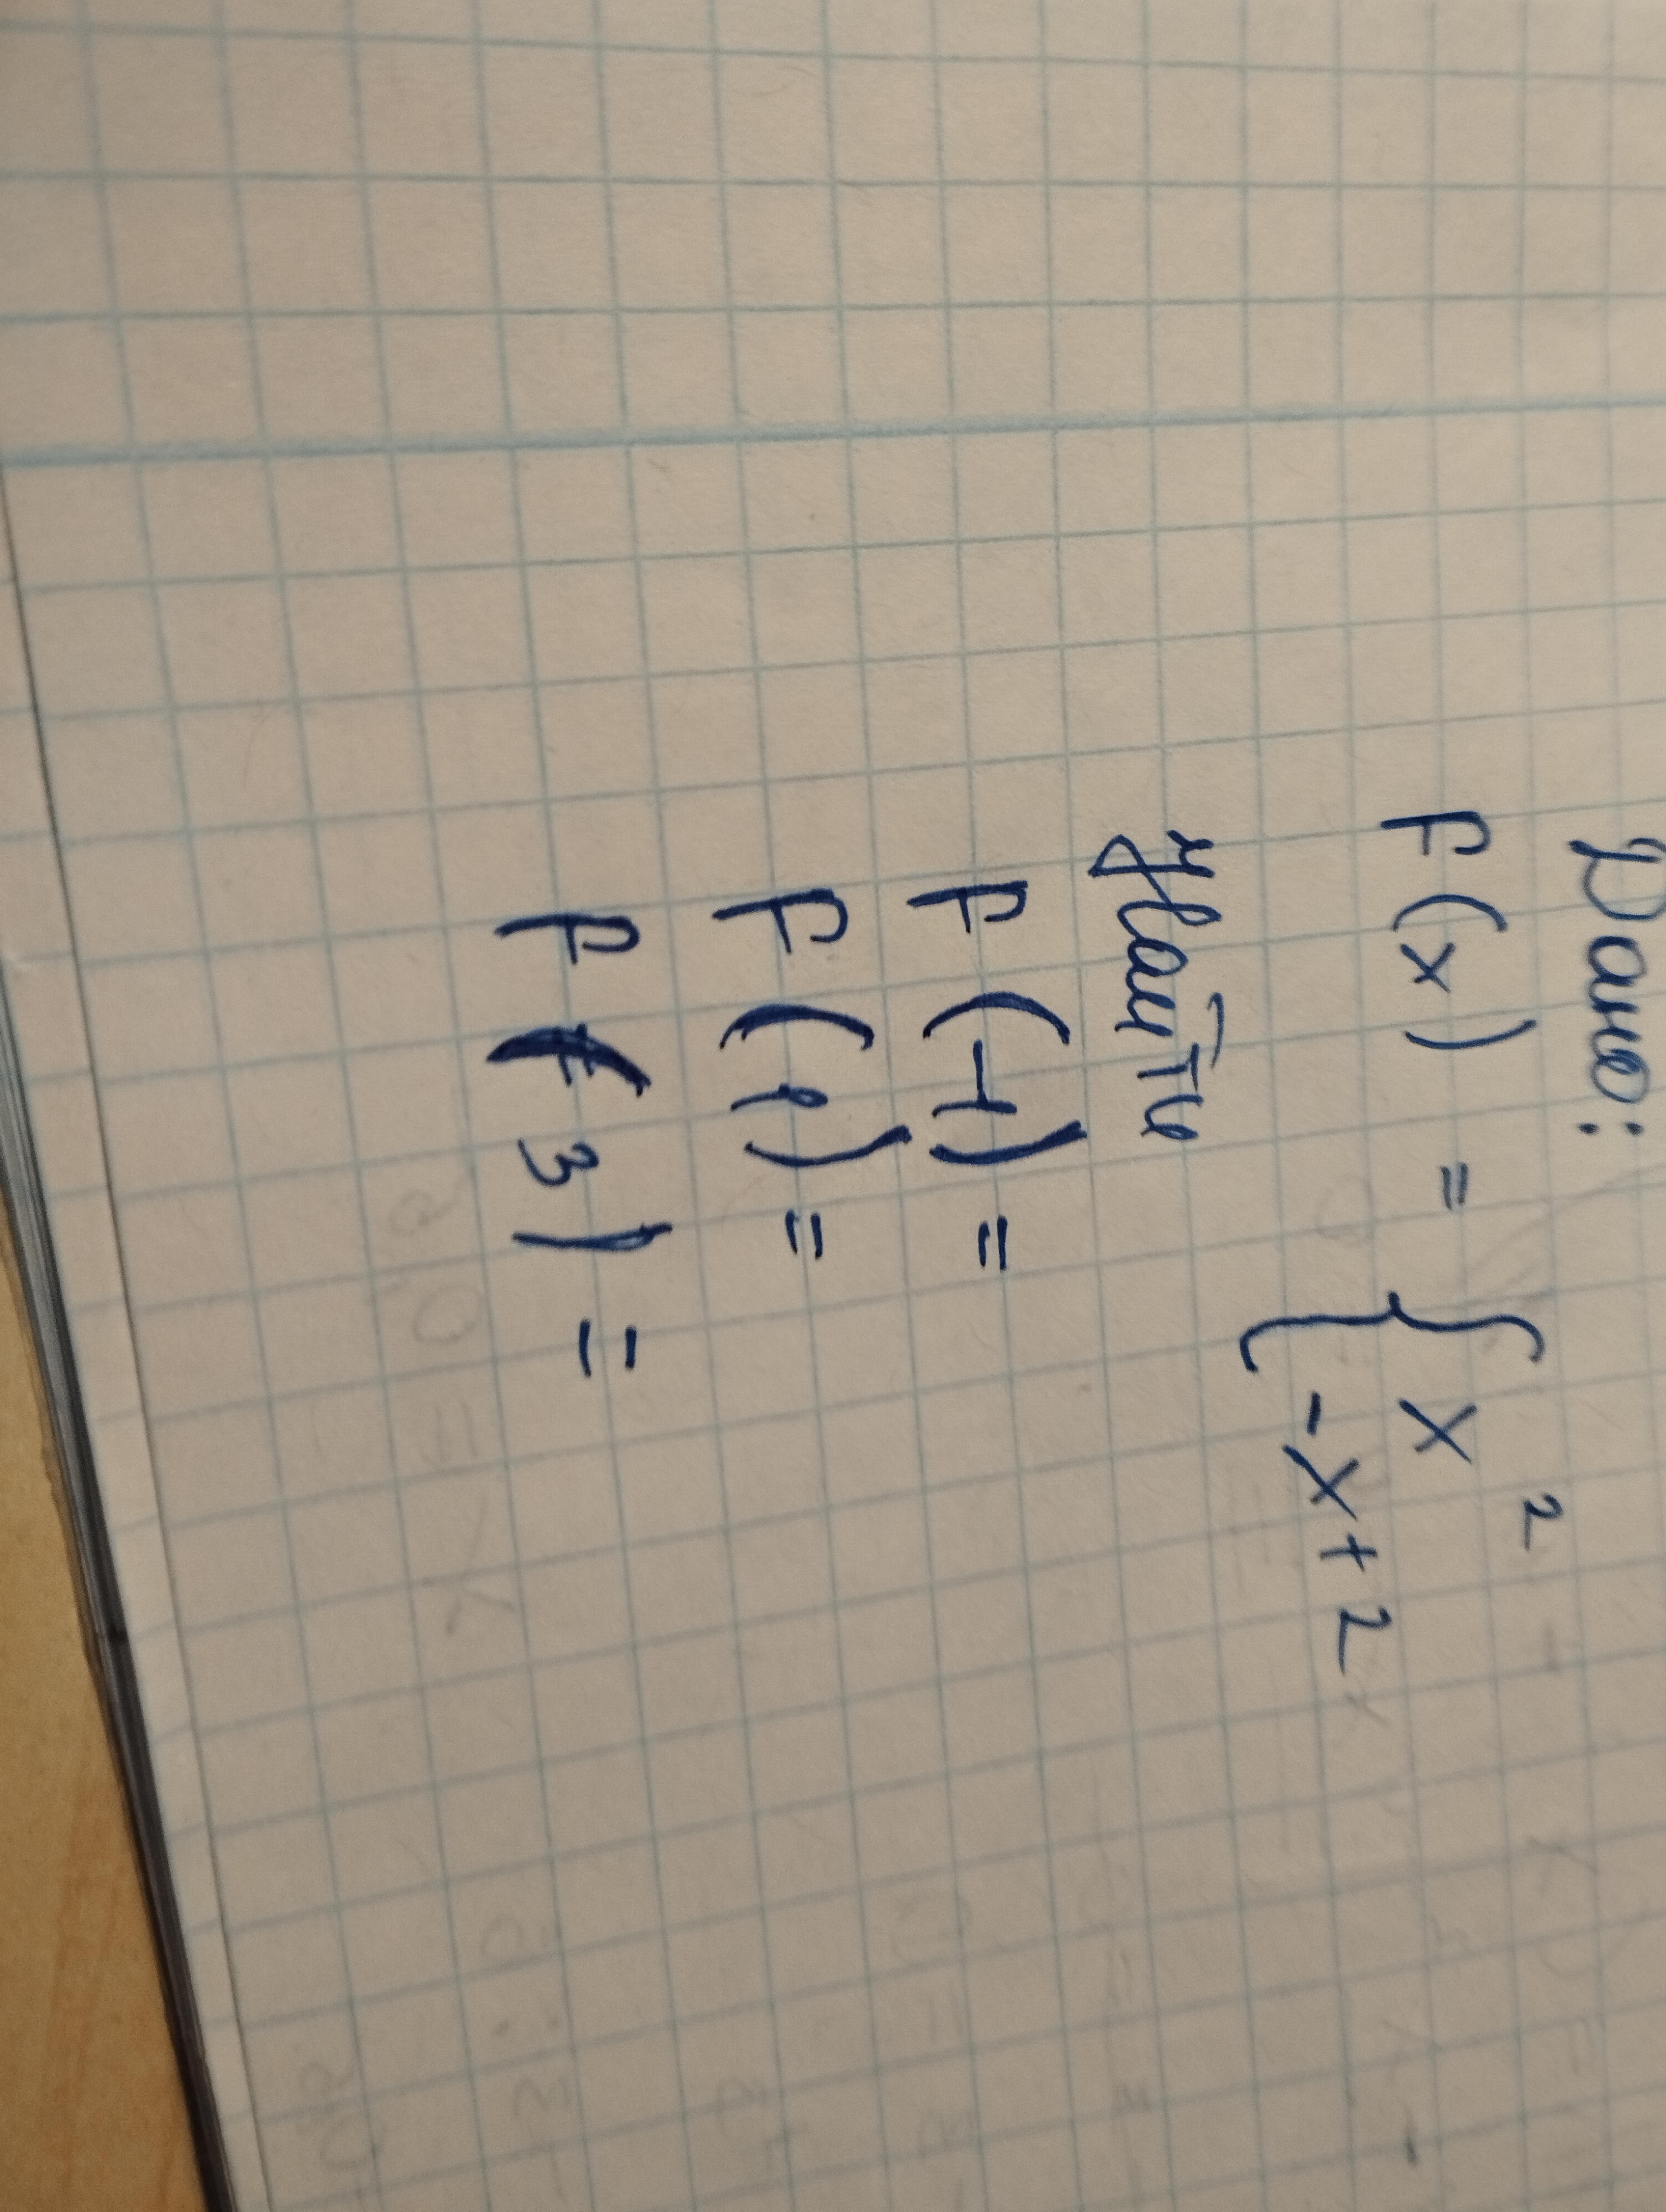 Дано:
F(x) = { x²
-x+2
Найти
F(-1) =
F(1) =
F(3) =